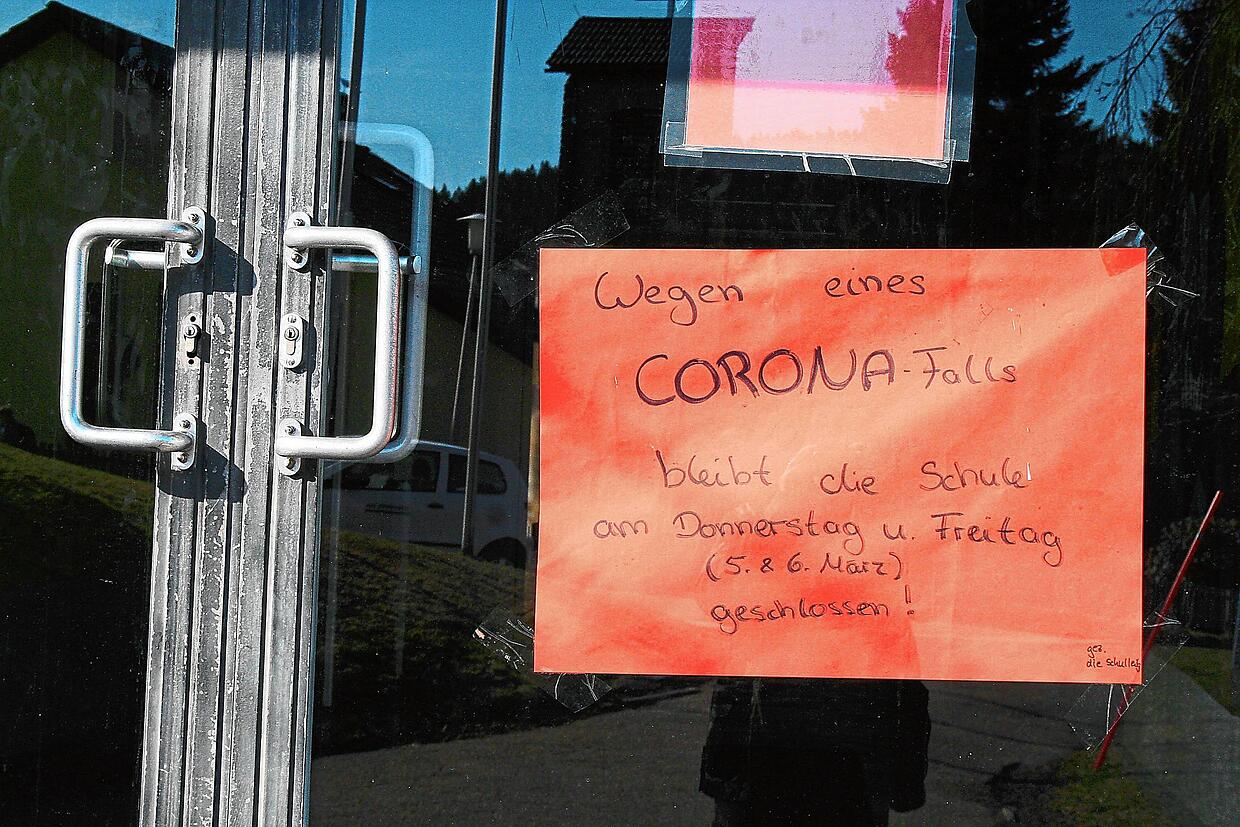 Wegen eines
CORONA-Falls
bleibt die Schule
am Donnerstag u. Freitag
(5. & 6. März)
geschlossen!
gez.
die Schulleitg